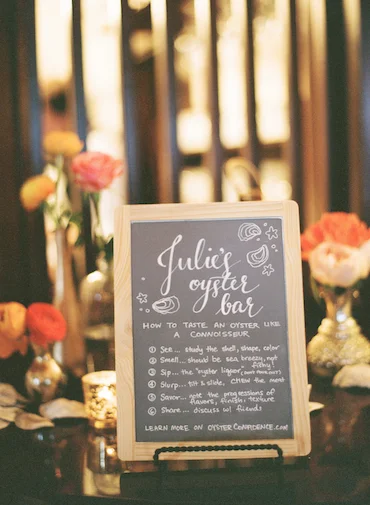 Julie's
oyster
bar
HOW TO TASTE AN OYSTER LIKE
A CONNOISSEUR
① See... study the shell, shape, color
② Smell... should be sea breezy, not
filthy!
③ Sip... the "oyster liquor",
④ Slurp... tilt & slide, CHEW the meat
⑤ Savor... note the progressions of
flavors, finish, texture
⑥ Share... discuss w/ friends
LEARN MORE ON OYSTERCONFIDENCE.COM